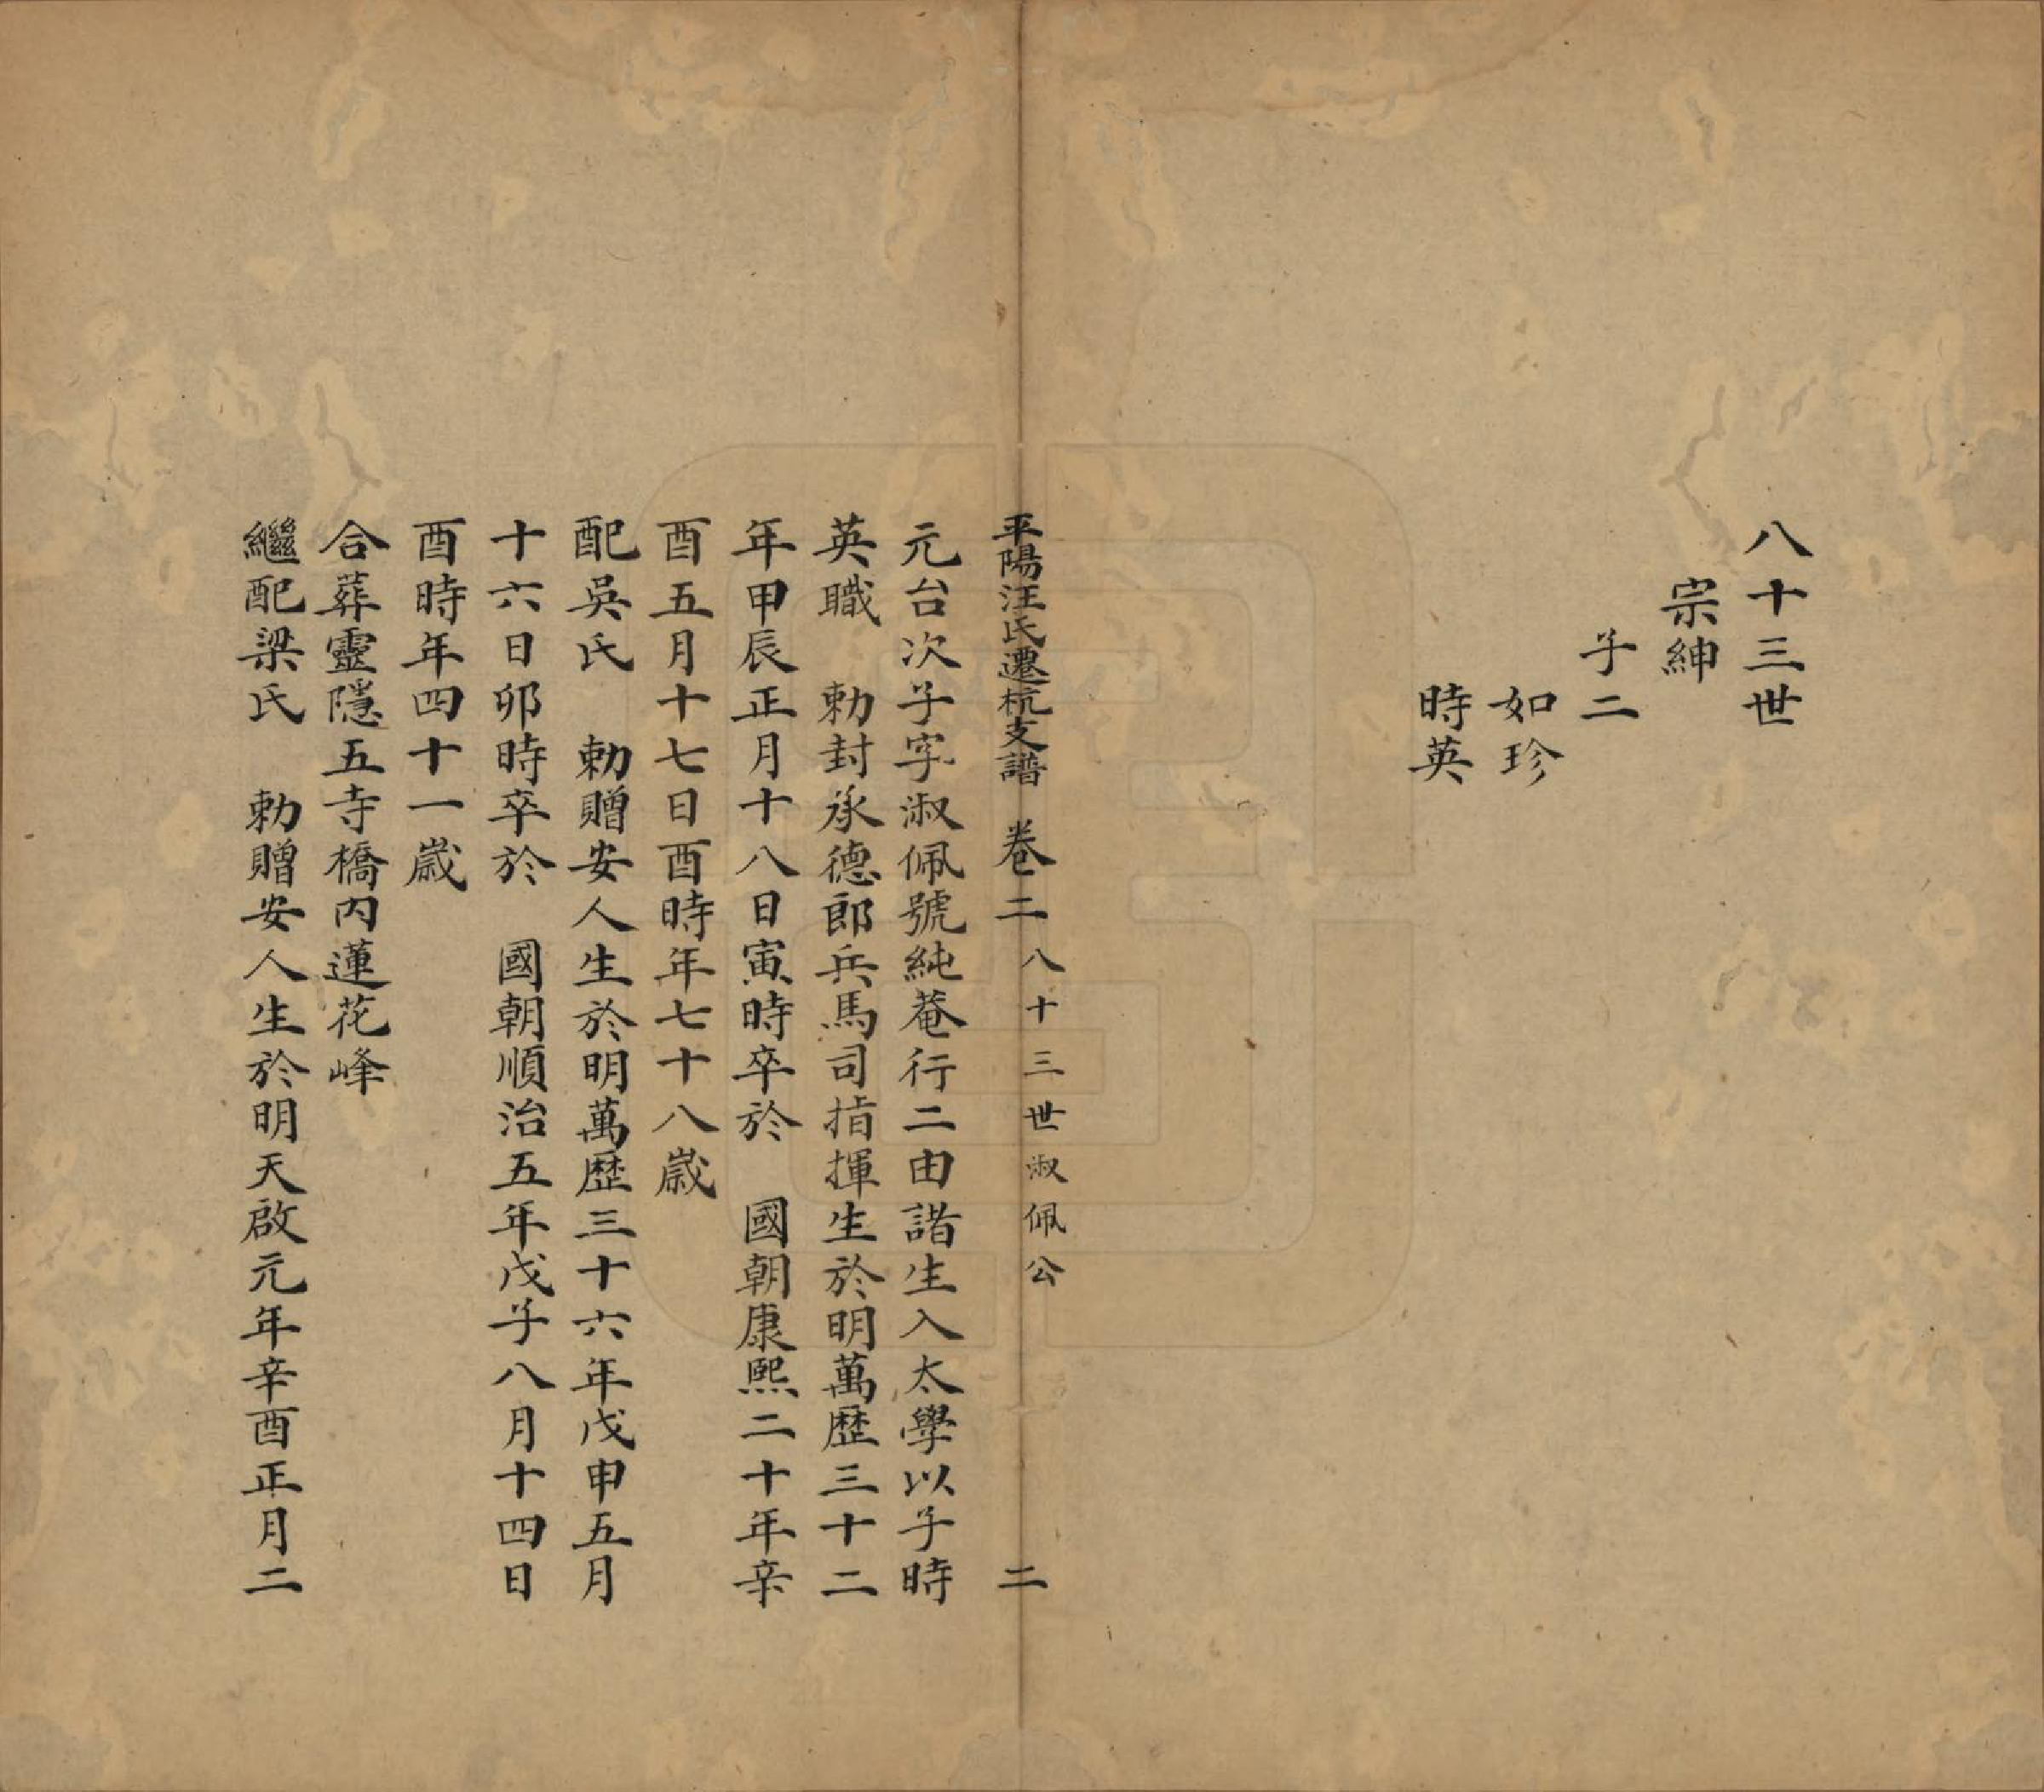 八十三世
宗紳
子二
如珍
時英
平陽汪氏遷杭支譜 卷二 八十三世淑佩公 二
元台次子字淑佩號純菴行二由諸生入太學以子時
英職 勅封承德郎兵馬司指揮生於明萬歷三十二
年甲辰正月十八日寅時卒於 國朝康熙二十年辛
酉五月十七日酉時年七十八歲
配吳氏 勅贈安人生於明萬歷三十六年戊申五月
十六日卯時卒於 國朝順治五年戊子八月十四日
酉時年四十一歲
合葬靈隱五寺橋内蓮花峰
繼配梁氏 勅贈安人生於明天啟元年辛酉正月二